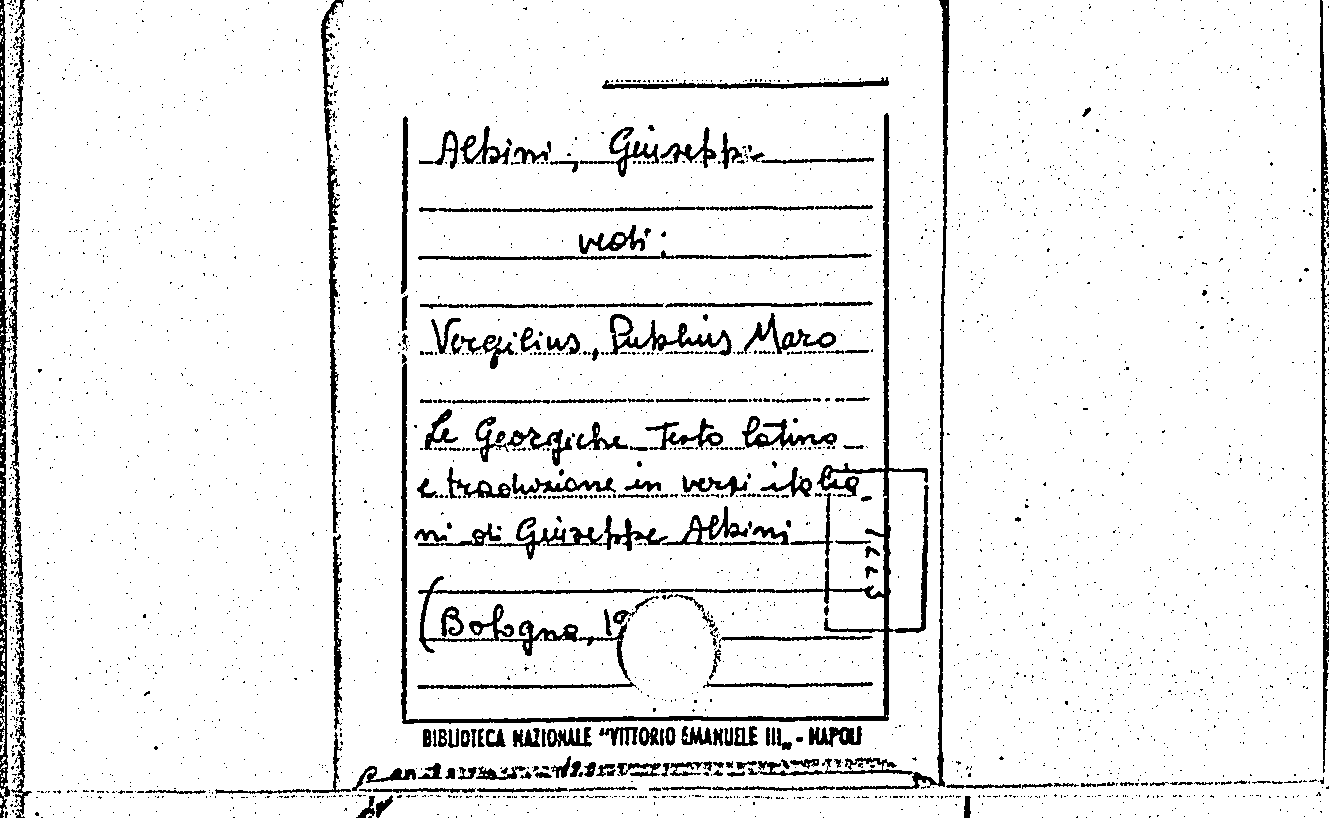 Albini, Giuseppe
vedi:
Vergilius, Publius Maro
Le Georgiche Testo latino
e traduzione in versi italia-
ni di Giuseppe Albini
(Bologna, 19
BIBLIOTECA NAZIONALE "VITTORIO EMANUELE III„ - NAPOLI